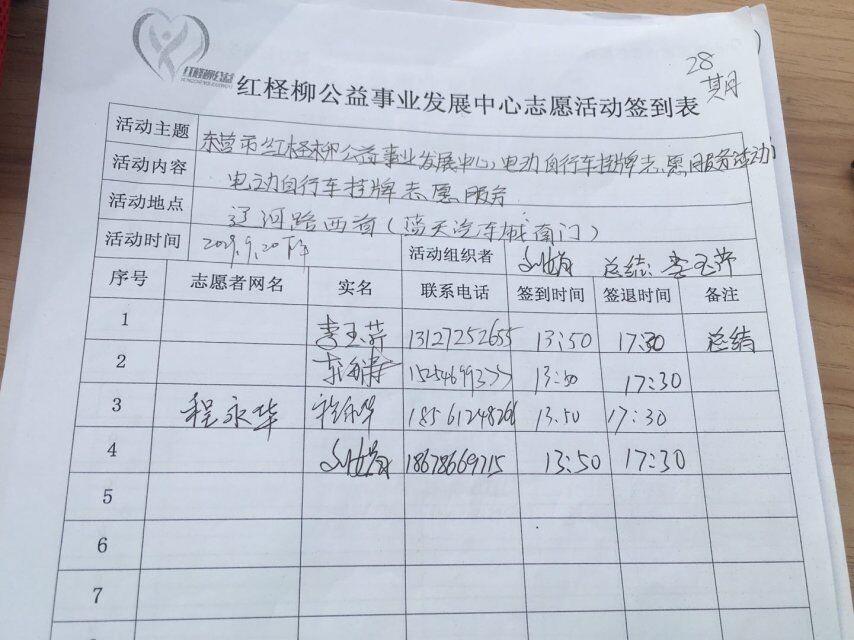 红柽柳公益
红柽柳公益事业发展中心志愿活动签到表
28期
活动主题 东营市红柽柳公益事业发展中心,电动自行车挂牌志愿服务活动
活动内容 电动自行车挂牌志愿服务
活动地点 辽河路西首(蓝天汽车城南门)
活动时间 9.20下午 活动组织者 总结:李玉萍
序号 志愿者网名 实名 联系电话 签到时间 签退时间 备注
1 李玉萍 13127252655 13:50 17:30 总结
2 13:50 17:30
3 程永华 程永华 13.50 17:30
4 18678669715 13:50 17:30
5
6
7